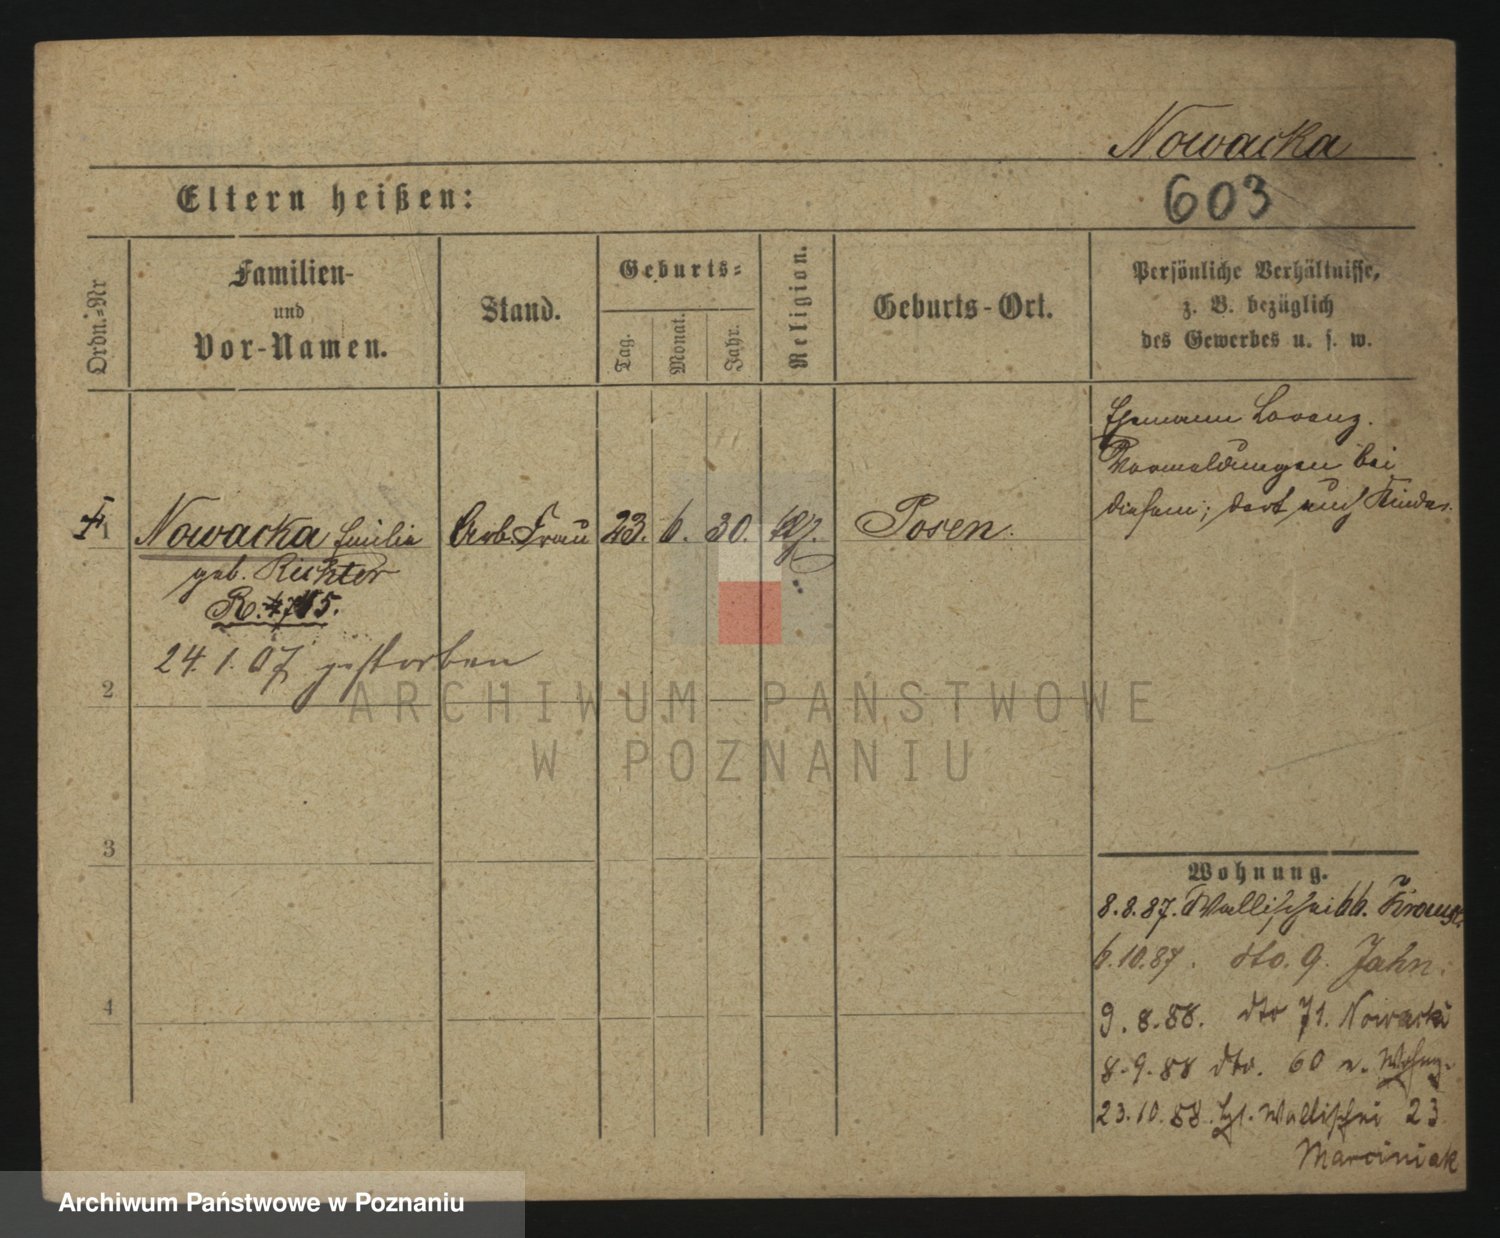 Nowacka
Eltern heißen:
603
Ordn.-Nr
Familien-
und
Vor-Namen.
Stand.
Geburts-
Tag.
Monat.
Jahr.
Religion.
Geburts-Ort.
Persönliche Verhältnisse,
z. B. bezüglich
des Gewerbes u. s. w.
Ehemann Lorenz.
Vormeldungen bei
diesem; dort auch Kinder.
1 Nowacka Emilie Arb. Frau 23. 6. 30. Posen.
geb. Richter
24.1.07 gestorben
2
3
4
Wohnung.
8.8.87. Wallischei 66. Krause
6.10.87. dto. 9. Jahn.
9.8.88. dto 71. Nowacki
8.9.88 dto. 60 n. Wohng.
23.10.88. Wallischei 23
Marciniak
ARCHIWUM PAŃSTWOWE
W POZNANIU
Archiwum Państwowe w Poznaniu